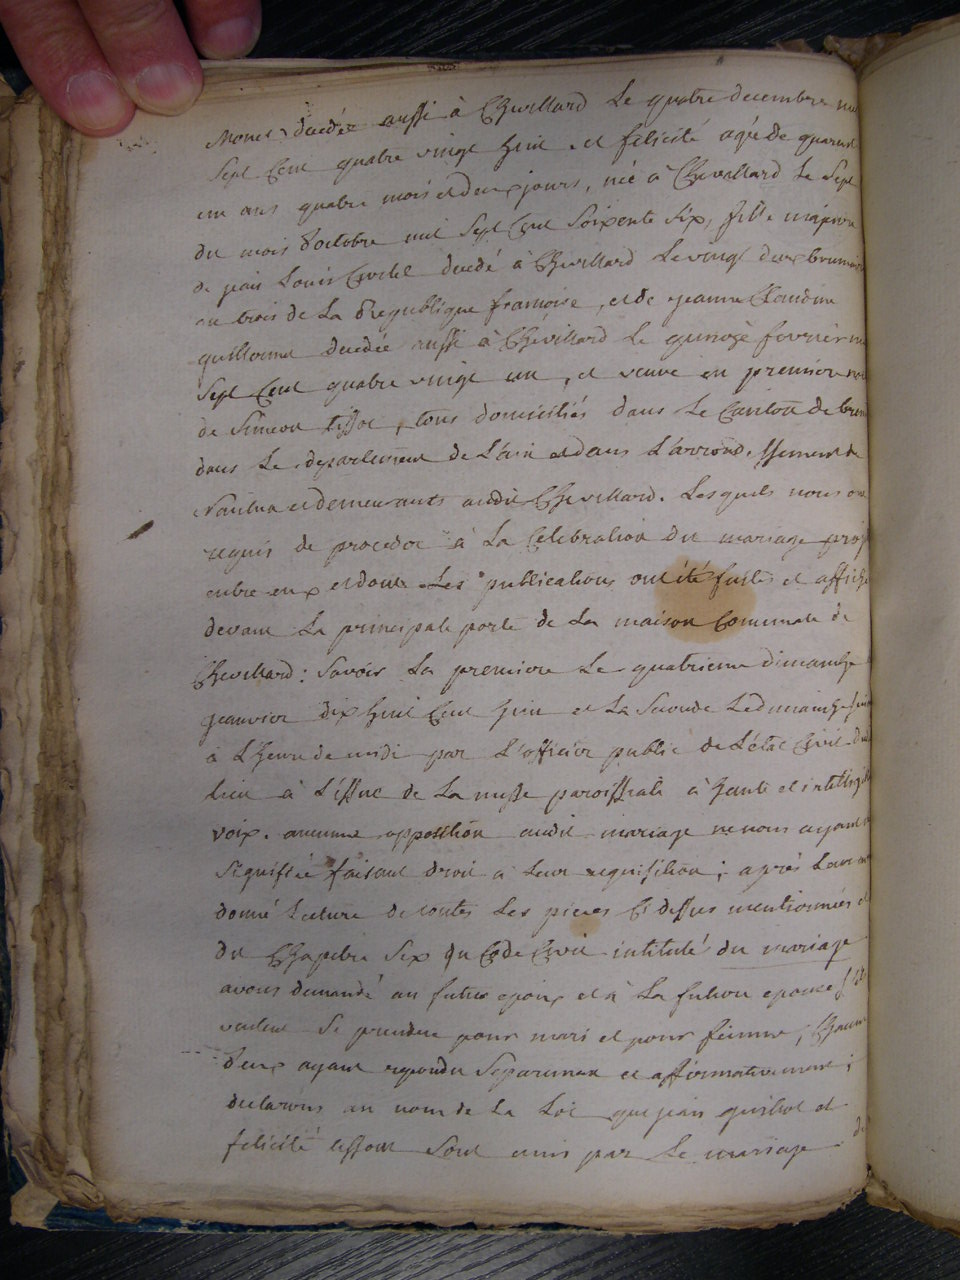 décédée aussi à Chevillard Le quatre decembre mil
Sept Cent quatre vingt huit et felicité agée de quarante
un ans quatre mois et deux jours, née à Chevillard Le Sept
du mois d'octobre mil Sept Cent Soixente Six, fille majeure
de jean Louis décédé à Chevillard Le vingt deux brumaire
an trois de La Republique francoise, et de jeanne Claudine
guillermet décédée aussi à Chevillard Le quinze fevrier mil
Sept Cent quatre vingt un, et veuve en premiere
de Simeon tissot, tous domiciliés dans Le Canton de
dans Le departement de L'ain et dans L'arrondissement de
Nantua et demeurants audit Chevillard. Lesquels nous ont
requis de proceder à La Celebration du mariage projeté
entre eux et dont Les publications ont été faites et affichées
devant La principale porte de La maison Communale de
Chevillard : Savoir La premiere Le quatrieme dimanche
jeanvier dix huit Cent huit et La Seconde Le dimanche
à L'heure de midi par L'officier public de L'état Civil dudit
lieu à L'issue de La messe paroissiale à haute et intelligible
voix. aucunne opposition audit mariage ne nous ayant
Signifiée faisant droit à Leur requisition ; après Leur avoir
donné Lecture de toutes Les pieces Ci dessus mentionnées et
du Chapitre Six du Code Civil intitulé du mariage
avons demandé au futur epoux et à La future epouse S'ils
veulent Se prendre pour mari et pour femme, Chacun
d'eux ayant repondu Separement et affirmativement ;
declarons au nom de La Loi que jean et
felicité Sont unis par Le mariage de